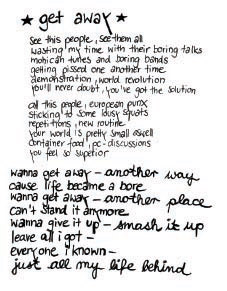 ★ get away ★
see this people, see them all
wasting my time with their boring talks
mohican tunes and boring bands
getting pissed one another time
demonstration, world revolution
you'll never doubt, you've got the solution
all this people, european punx
sticking to some lousy squats
repetitions, new routine
your world is pretty small aswell
container food, pc-discussions
you feel so superior
wanna get away - another way
cause life became a bore
wanna get away - another place
can't stand it anymore
wanna give it up - smash it up
leave all i got -
everyone i known -
just all my life behind